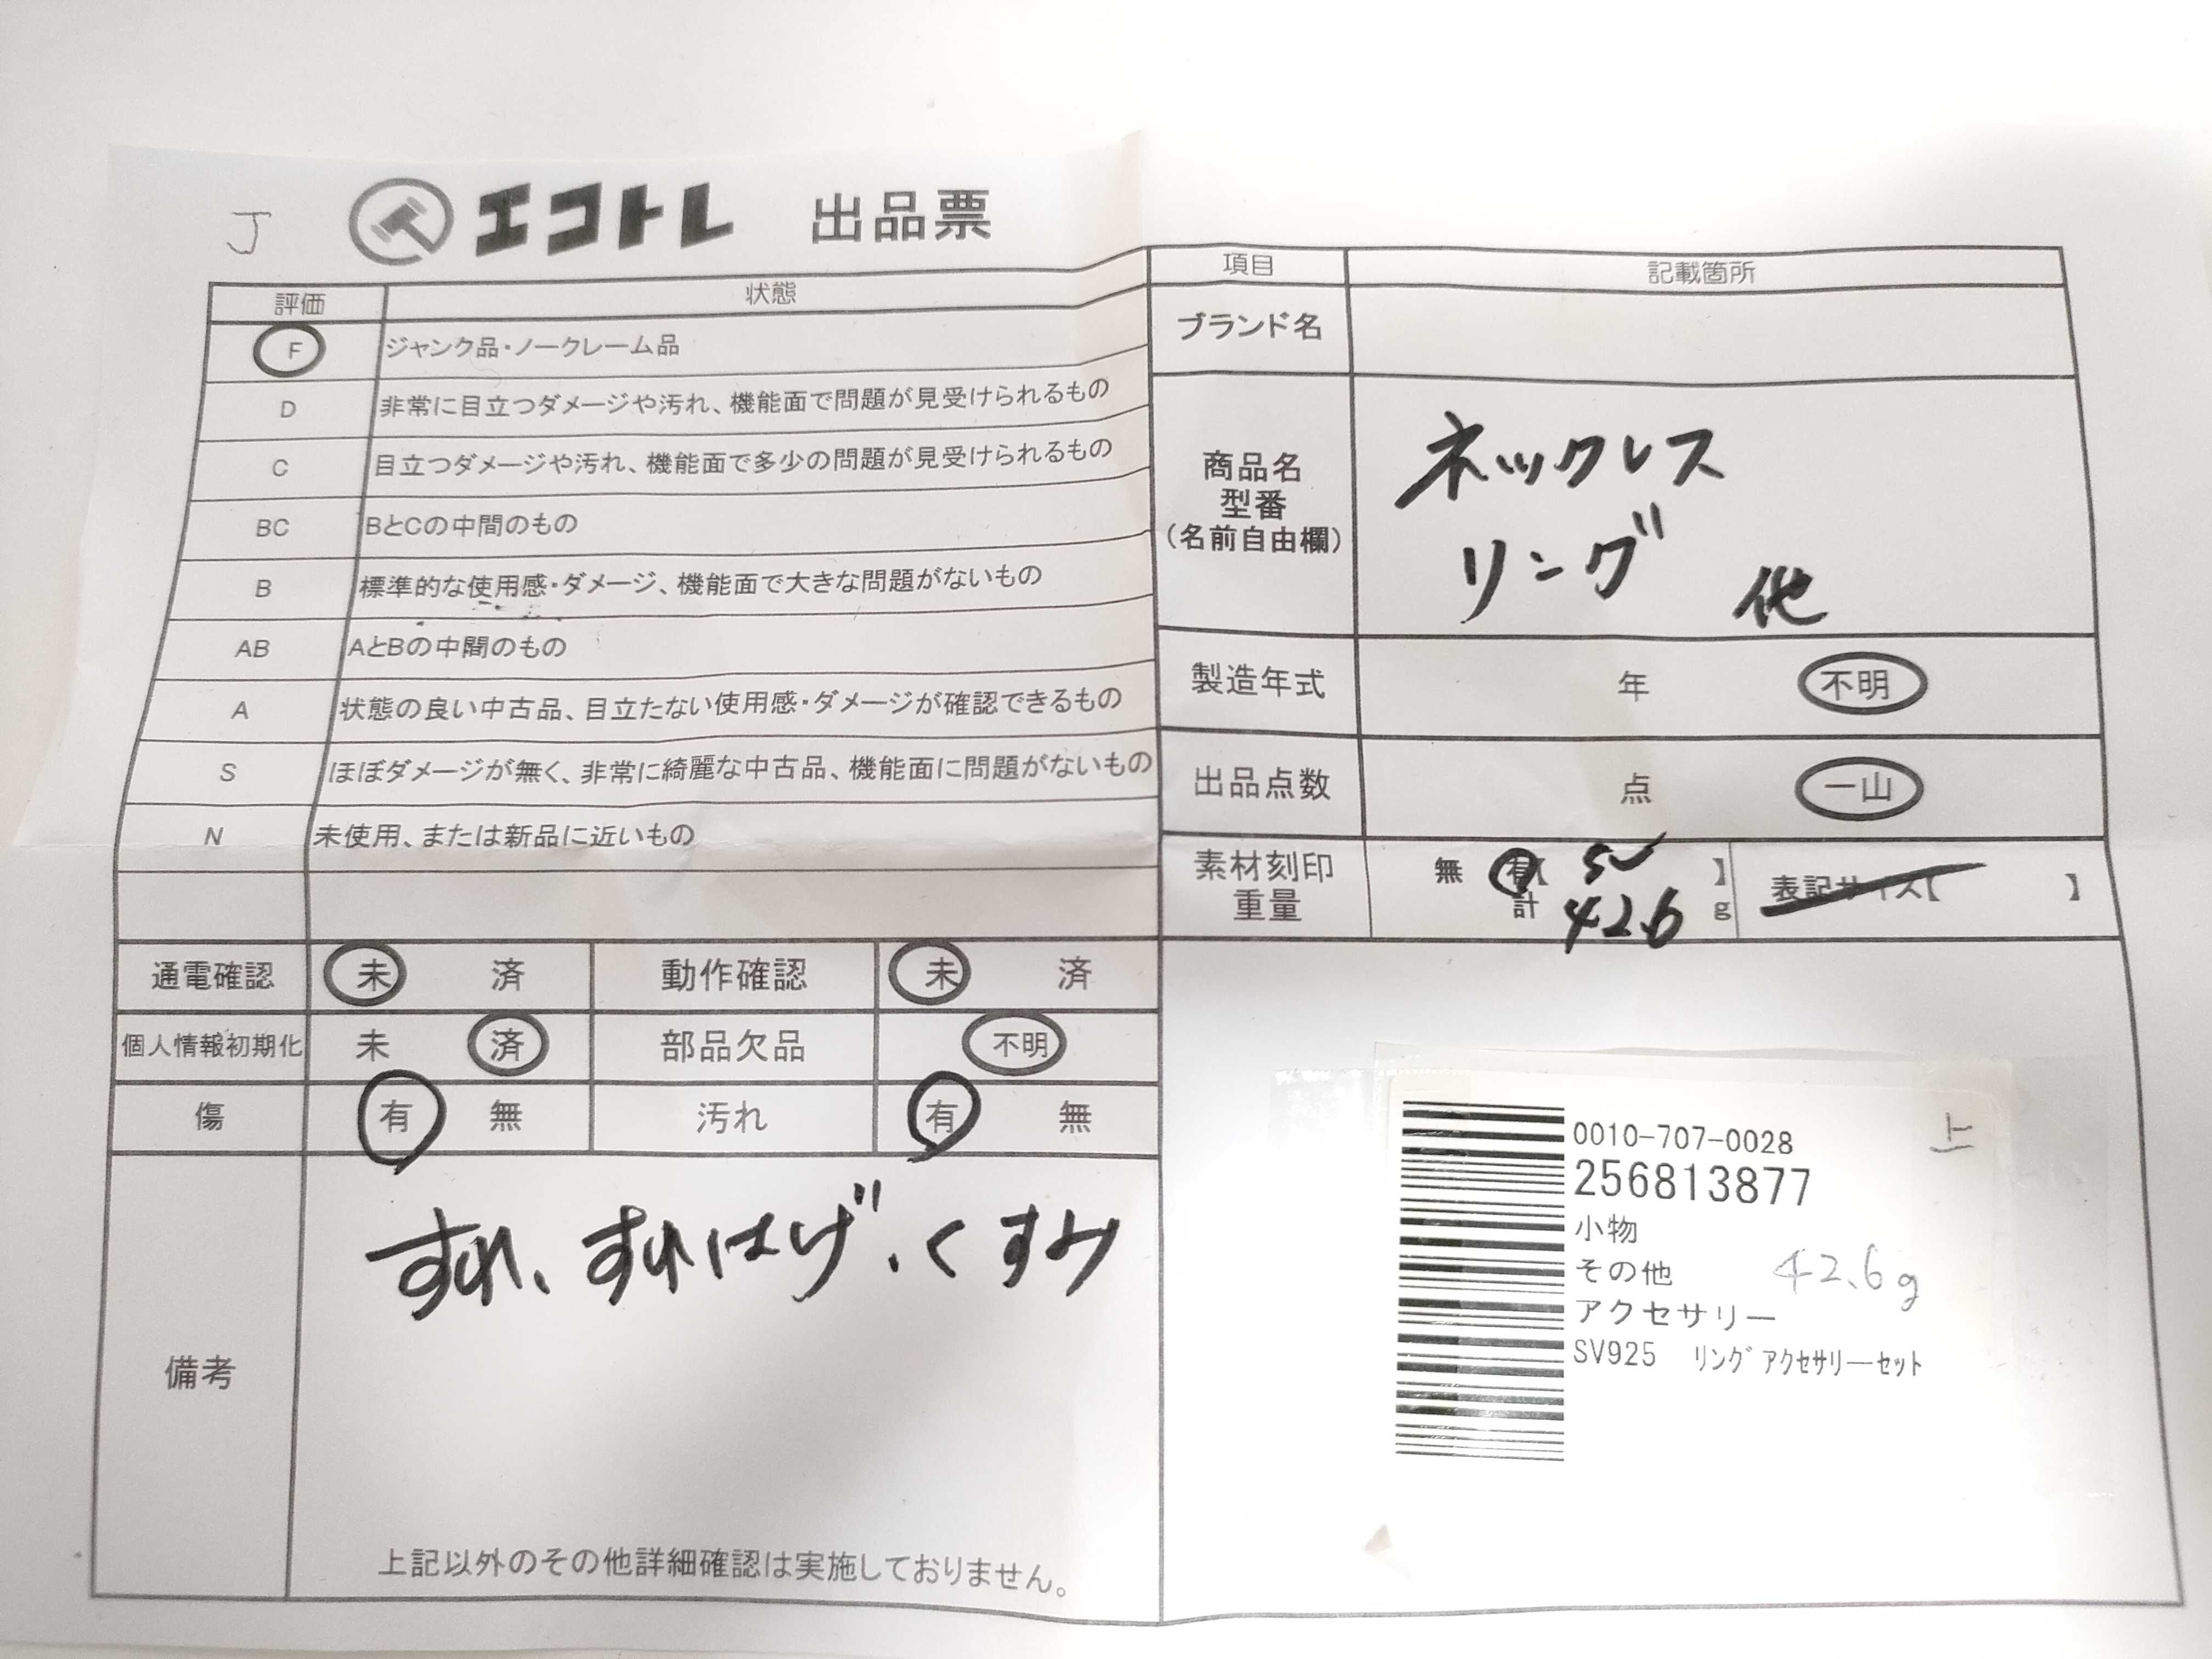 J
エコトレ 出品票
評価 状態
F ジャンク品・ノークレーム品
D 非常に目立つダメージや汚れ、機能面で問題が見受けられるもの
C 目立つダメージや汚れ、機能面で多少の問題が見受けられるもの
BC BとCの中間のもの
B 標準的な使用感・ダメージ、機能面で大きな問題がないもの
AB AとBの中間のもの
A 状態の良い中古品、目立たない使用感・ダメージが確認できるもの
S ほぼダメージが無く、非常に綺麗な中古品、機能面に問題がないもの
N 未使用、または新品に近いもの
通電確認 未 済 動作確認 未 済
個人情報初期化 未 済 部品欠品 不明
傷 有 無 汚れ 有 無
備考
すれ、すれはげ、くすみ
上記以外のその他詳細確認は実施しておりません。
項目 記載箇所
ブランド名
商品名
型番
(名前自由欄)
ネックレス
リング 他
製造年式 年 不明
出品点数 点 一山
素材刻印
重量
無 有【 SV 】
計 42.6 g
表記サイズ【 】
0010-707-0028
上
256813877
小物
その他
42.6g
アクセサリー
SV925 リングアクセサリーセット